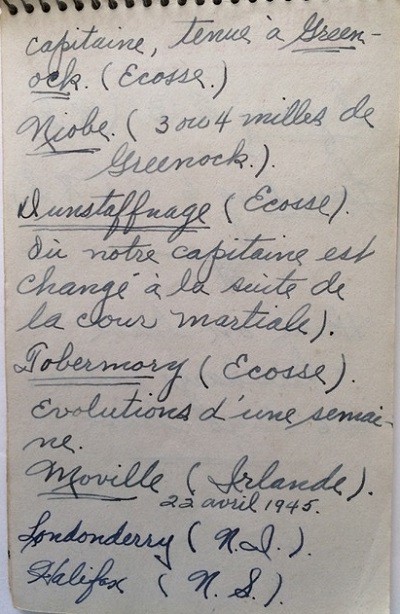 capitaine, tenue à Green-
ock. (Ecosse.)
Niobe. (3 ou 4 milles de
Greenock.).
Dunstaffnage (Ecosse).
où notre capitaine est
changé à la suite de
la cour martiale).
Tobermory (Ecosse).
Evolutions d'une semai-
ne.
Moville (Irlande).
22 avril 1945.
Londonderry (N.I.).
Halifax (N.S.).